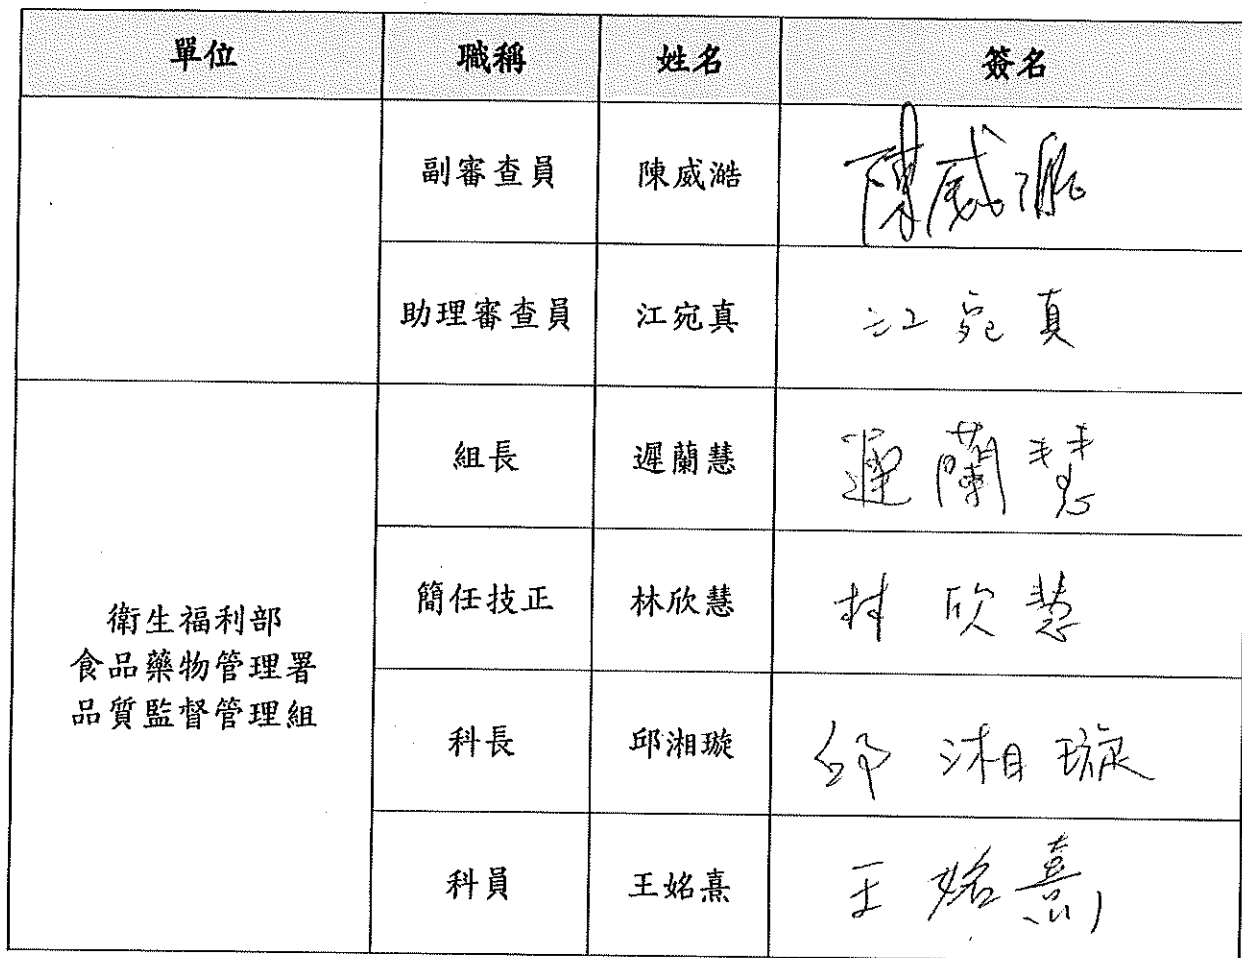 單位 職稱 姓名 簽名
副審查員 陳威澔 陳威澔
助理審查員 江宛真 江宛真
組長 遲蘭慧 遲蘭慧
衛生福利部
食品藥物管理署
品質監督管理組
簡任技正 林欣慧 林欣慧
科長 邱湘璇 邱湘璇
科員 王姳熹 王姳熹